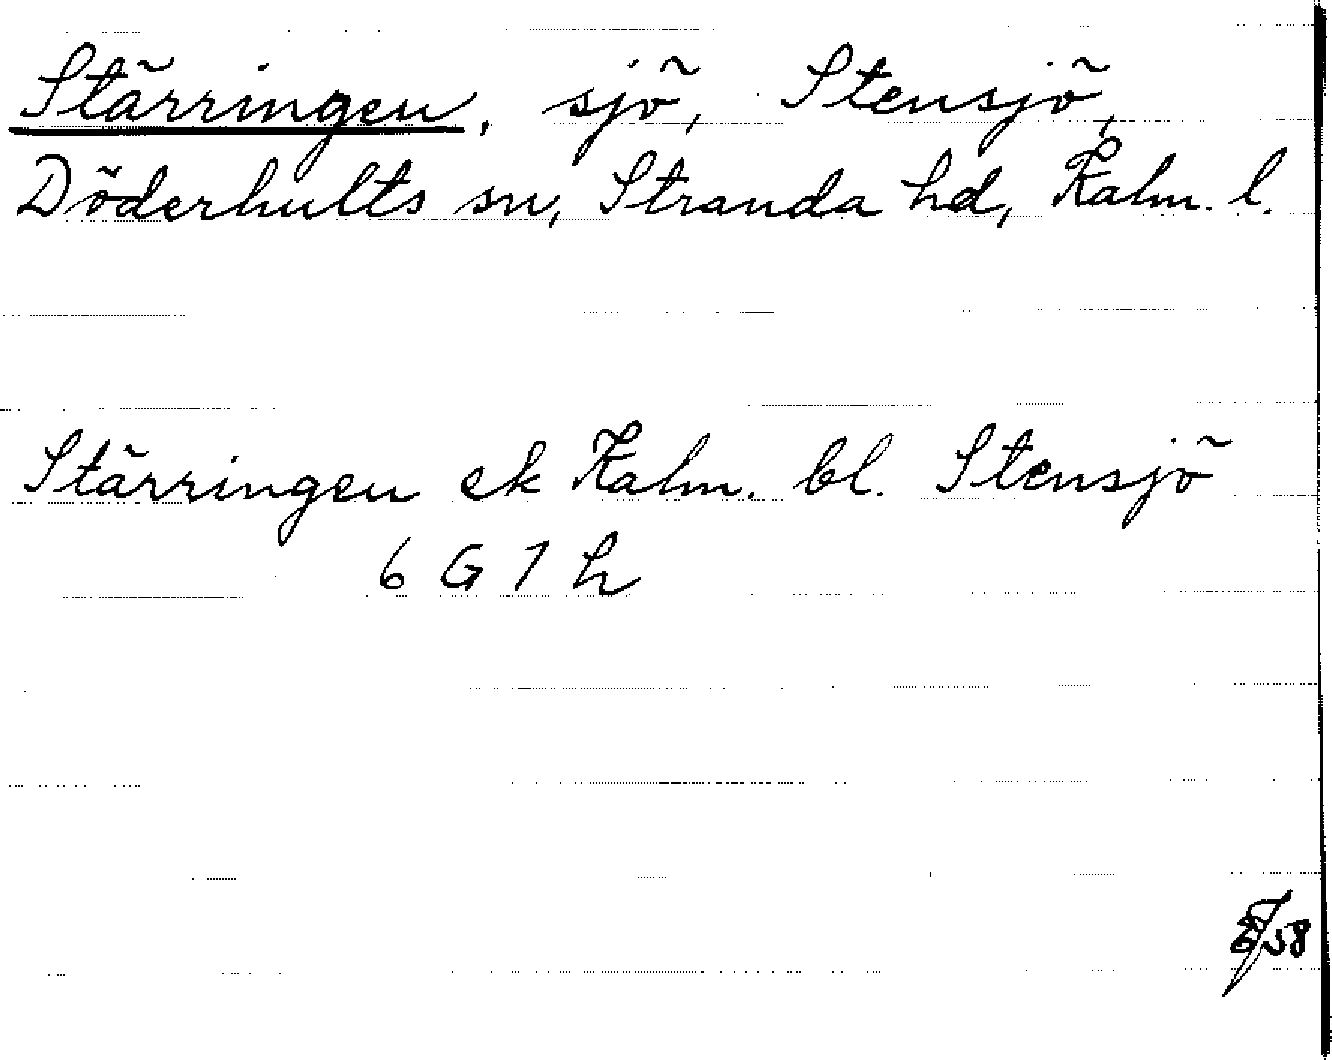 Stärringen, sjö, Stensjö,
Döderhults sn, Stranda hd, Kalm. l.
Stärringen ek Kalm. bl. Stensjö
6 G 7 h